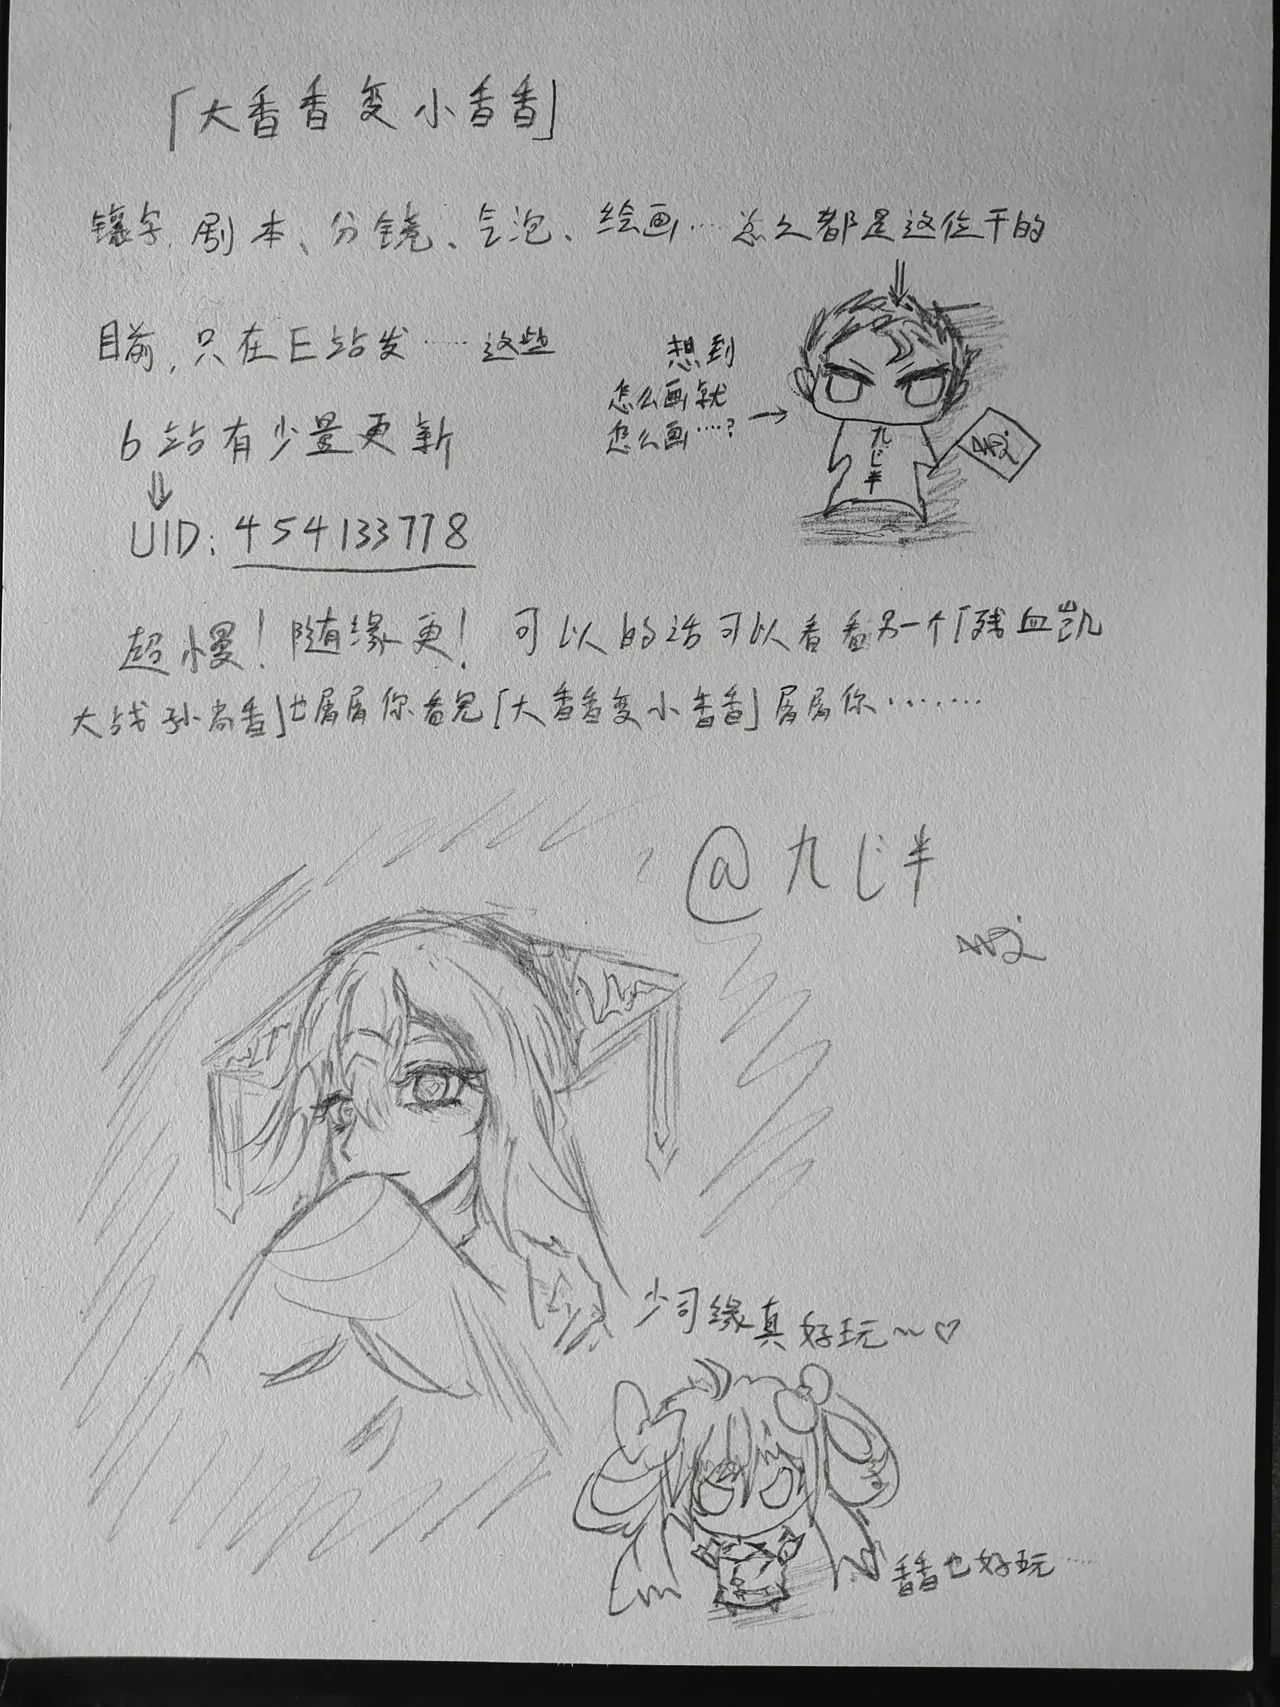 「大香香变小香香」
镶字、剧本、分镜、气泡、绘画……怎么都是这位干的
目前,只在E站发……这些
想到
怎么画就
怎么画……?
九じ半
b站有少量更新
UID: 454133778
超慢!随缘更!可以的话可以看看另一个「残血凯
大战孙尚香」也屑屑你看完「大香香变小香香」屑屑你………
@九じ半
少司缘真好玩~♡
香香也好玩……